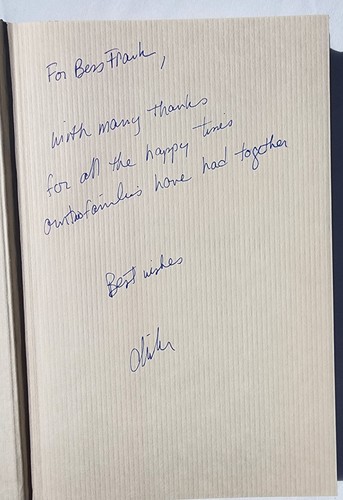 For Bess Frank,
With many thanks
for all the happy times
our two families have had together
Best wishes